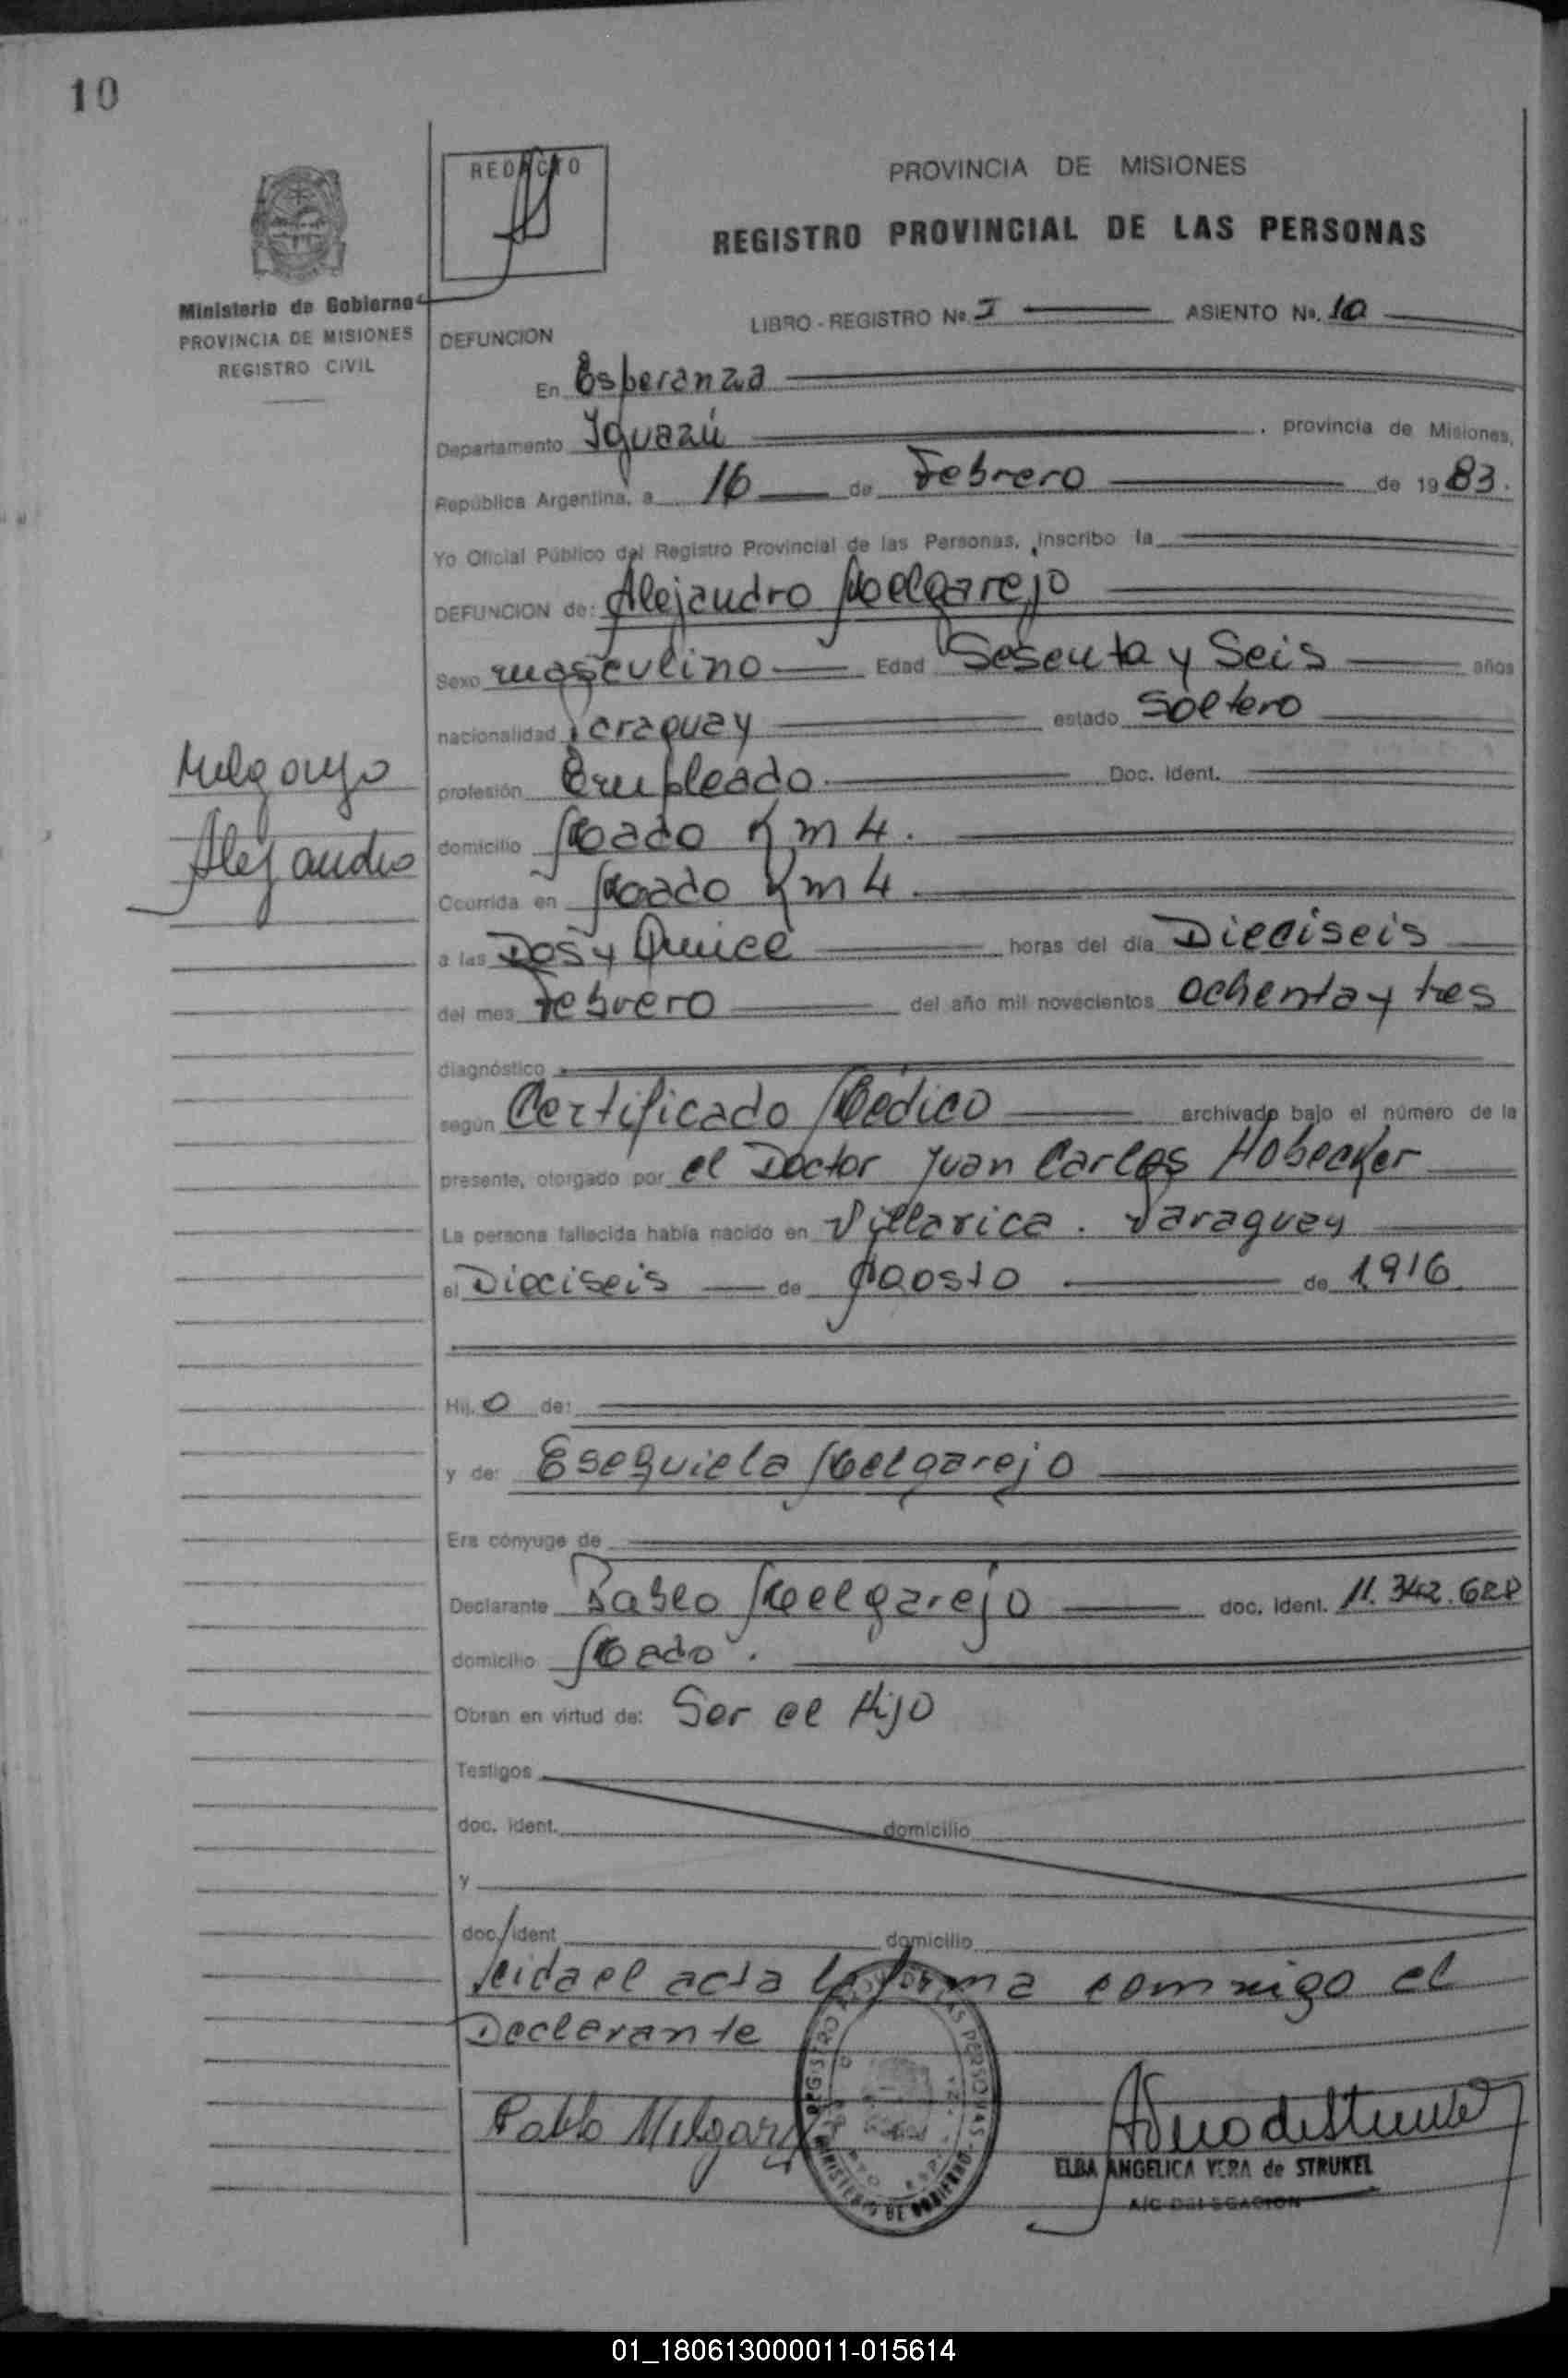 10
REDACTO
PROVINCIA DE MISIONES
REGISTRO PROVINCIAL DE LAS PERSONAS
Ministerio de Gobierno
PROVINCIA DE MISIONES
REGISTRO CIVIL
LIBRO - REGISTRO Nº I ASIENTO Nº. 10
DEFUNCION
En Esperanza
Departamento Iguazú , provincia de Misiones,
República Argentina, a 16 de Febrero de 1983.
Yo Oficial Público del Registro Provincial de las Personas, inscribo la
DEFUNCION de: Alejandro Melgarejo
Sexo masculino Edad Sesenta y Seis años
nacionalidad Paraguay estado Soltero
Melgarejo
profesión Empleado Doc. Ident.
domicilio Mado Km 4.
Alejandro
Ocurrida en Mado Km 4
a las Dos y Quince horas del día Dieciseis
del mes Febrero del año mil novecientos ochenta y tres
diagnóstico
según Certificado Médico archivado bajo el número de la
presente, otorgado por el Doctor Juan Carlos Hobecker
La persona fallecida había nacido en Villarica. Paraguay
el Dieciseis de Agosto de 1916
Hij. o de:
y de: Esequiela Melgarejo
Era cónyuge de
Declarante Pablo Melgarejo doc. ident. 11.342.628
domicilio Mado.
Obran en virtud de: Ser el Hijo
Testigos
doc. ident. domicilio
y
doc. ident domicilio
Leida el acta la firma conmigo el
Declarante
Pablo Melgarejo
REGISTRO PROV. DE LAS PERSONAS
MINISTERIO DE GOBIERNO
ELBA ANGELICA VERA de STRUKEL
A/C DELEGACION
01_180613000011-015614